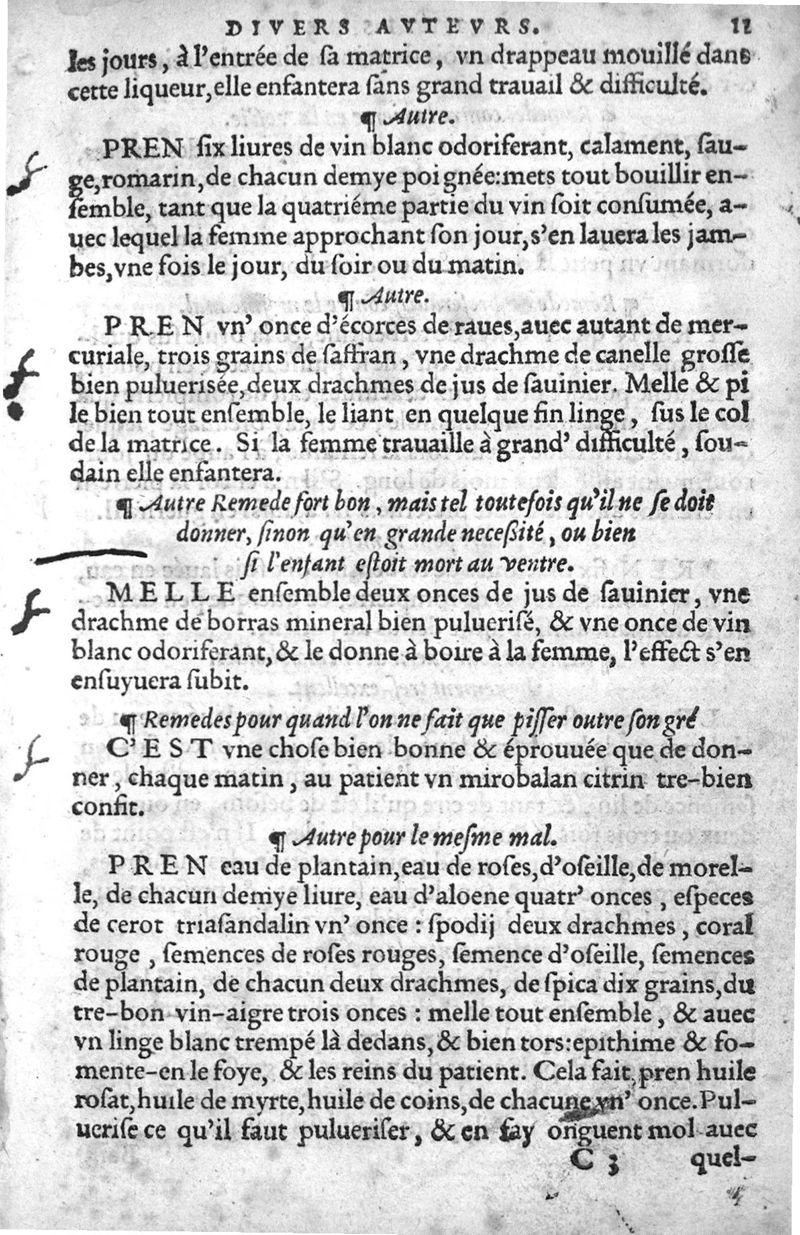 DIVERS AVTEVRS. 11
les jours, à l'entrée de sa matrice, vn drappeau mouillé dans
cette liqueur, elle enfantera ſans grand trauail & difficulté.
¶ Autre.
PREN ſix liures de vin blanc odoriferant, calament, ſau-
ge, romarin, de chacun demye poignée: mets tout bouillir en-
ſemble, tant que la quatriéme partie du vin ſoit conſumée, a-
uec lequel la femme approchant ſon jour, s'en lauera les jam-
bes, vne fois le jour, du ſoir ou du matin.
¶ Autre.
PREN vn' once d'écorces de raues, auec autant de mer-
curiale, trois grains de ſaffran, vne drachme de canelle groſſe
bien puluerisée, deux drachmes de jus de ſauinier. Melle & pi
le bien tout enſemble, le liant en quelque fin linge, ſus le col
de la matrice. Si la femme trauaille à grand' difficulté, ſou-
dain elle enfantera.
¶ Autre Remede fort bon, mais tel toutefois qu'il ne ſe doit
donner, ſinon qu'en grande neceßité, ou bien
ſi l'enfant eſtoit mort au ventre.
MELLE enſemble deux onces de jus de ſauinier, vne
drachme de borras mineral bien pulueriſé, & vne once de vin
blanc odoriferant, & le donne à boire à la femme, l'effect s'en
enſuyuera ſubit.
¶ Remedes pour quand l'on ne fait que piſſer outre ſon gré
C'EST vne choſe bien bonne & éprouuée que de don-
ner, chaque matin, au patient vn mirobalan citrin tre-bien
confit.
¶ Autre pour le meſme mal.
PREN eau de plantain, eau de roſes, d'oſeille, de morel-
le, de chacun demye liure, eau d'aloene quatr' onces, eſpeces
de cerot triaſandalin vn' once : ſpodij deux drachmes, coral
rouge, ſemences de roſes rouges, ſemence d'oſeille, ſemences
de plantain, de chacun deux drachmes, de ſpica dix grains, du
tre-bon vin-aigre trois onces : melle tout enſemble, & auec
vn linge blanc trempé là dedans, & bien tors: epithime & fo-
mente-en le foye, & les reins du patient. Cela fait, pren huile
roſat, huile de myrte, huile de coins, de chacune vn' once. Pul-
ueriſe ce qu'il faut pulueriſer, & en fay onguent mol auec
C 3 quel-